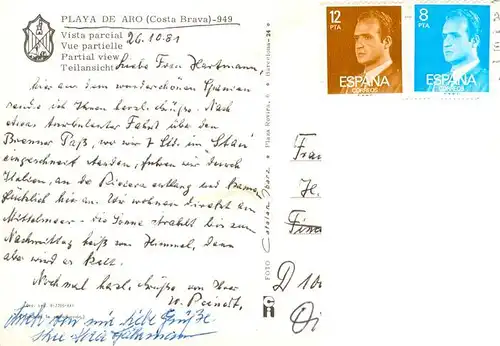 PLAYA DE ARO (Costa Brava)-949
Vista parcial 26.10.81
Vue partielle
Partial view
Teilansicht
Liebe Frau Hartmann,
hier aus dem wunderschönen Spanien
sende ich Ihnen herzl. Grüße. Nach
einer turbulenten Fahrt über den
Brenner Paß, wo wir 7 Std. im "Stau"
eingeschneit standen, fuhren wir durch
Italien, an der Riviera entlang und kamen
glücklich hier an. Wir wohnen direkt am
Mittelmeer - die Sonne strahlt bis zum
Nachmittag heiß vom Himmel, dann
aber wird es kalt.
Nochmal herzl. Grüße von Ihrer
Auch von mir liebe Grüße
Ihre
FOTO
Plaza Rovira, 6 Barcelona-24
12
PTA
ESPAÑA
CORREOS
8
PTA
ESPAÑA
CORREOS
Frau
H.
D